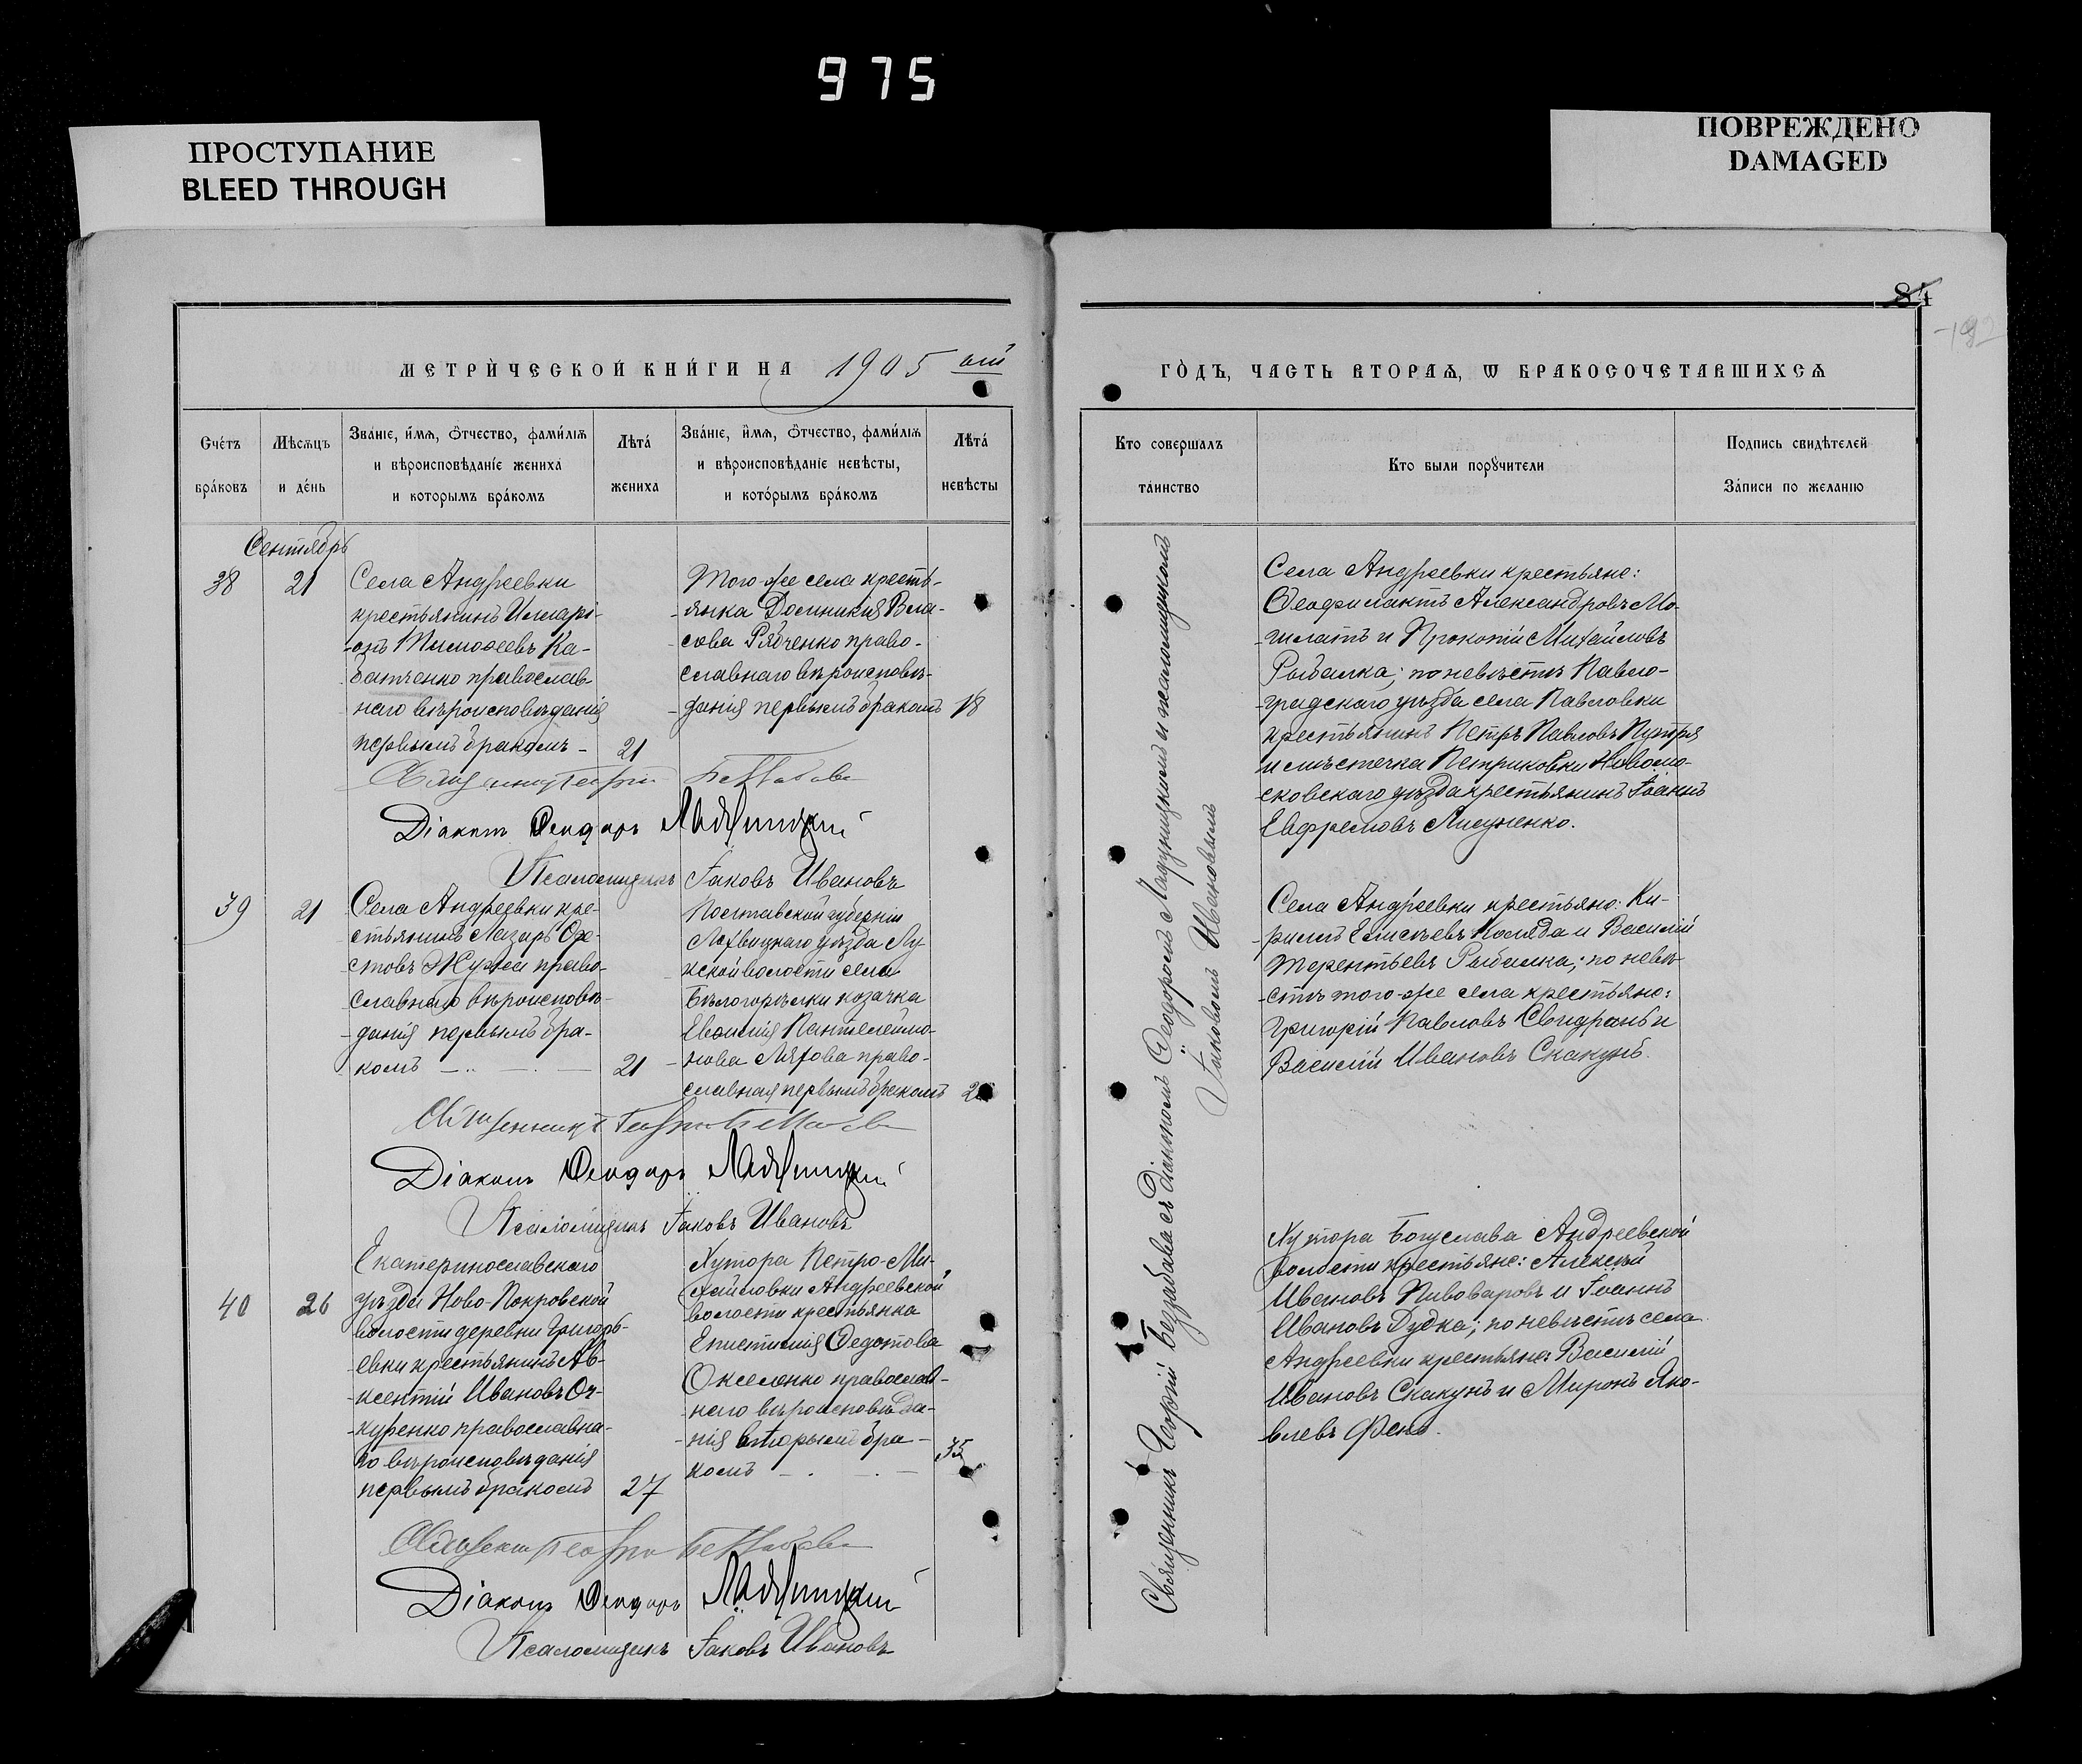 975
ПРОСТУПАНИЕ
BLEED THROUGH
ПОВРЕЖДЕНО
DAMAGED
84
МЕТРИ́ЧЕСКОЙ КНИ́ГИ НА 1905 ый
Сче́тъ
бра́ковъ
Мѣсяцъ
и де́нь
Зва́нїе, и́мя, ѻ́тчество, фами́лїя
и вѣроисповѣданїе жениха̀
и которымъ бра́комъ
Лѣта́
жениха
Зва́нїе, и́мя, ѻ́тчество, фами́лїя
и вѣроисповѣданїе невѣсты,
и кото́рымъ бра́комъ
Лѣта́
невѣсты
Сентябрь
38
21
Села Андреевки
крестьянинъ Иларі-
-онъ Тимофеевъ Ка-
батченко православ-
наго вѣроисповѣданія
первымъ бракомъ -
21
Того-же села кресть-
-янка Домникія Вла-
сова Рябченко право-
славнаго вѣроисповѣ-
-данія первымъ бракомъ
18
Діаконъ Ѳеодоръ
Псаломщикъ Іаковъ Ивановъ
39
21
Села Андреевки кре-
стьянинъ Лазарь Оре-
стовъ Жужа право-
славнаго вѣроисповѣ-
-данія первымъ бра-
комъ
21
Полтавской губерніи
Лохвицкаго уѣзда Лу
кской волости села
Бѣлогорѣлки козачка
Евѳимія Пантелеймо-
нова Ляхова право-
славная первымъ бракомъ
Священникъ
Діаконъ Ѳеодоръ
Псаломщикъ Іаковъ Ивановъ
40
26
Екатеринославскаго
уѣзда Ново-Покровской
волости деревни Григорь-
евки крестьянинъ Ав-
-ксентій Ивановъ Оч-
-куренко православна-
го вѣроисповѣданія
первымъ бракомъ
27
Хутора Петро-Ми-
хайловки Андреевской
волости крестьянка
Епистимія Ѳедотова
Окселенко православ-
-наго вѣроисповѣда-
-нія вторымъ бра-
комъ
35
Діаконъ Ѳеодоръ
Псаломщикъ Іаковъ Ивановъ
ГО́ДЪ, ЧАСТЬ ВТОРАЯ, Ѡ БРАКОСОЧЕТАВШИХСЯ
Кто совершалъ
та́инство
Кто были порꙋчители
Подпись свидѣтелей
За́писи по желанїю
Священникъ Георгій Безабава съ діакономъ Ѳеодоромъ Ладухицкимъ и псаломщикомъ
Іаковомъ Ивановымъ
Села Андреевки крестьяне:
Ѳеофилактъ Александровъ Мо-
-гилатъ и Прокопій Михайловъ
Рыбалка; по невѣстѣ Павло-
-градскаго уѣзда села Павловки
крестьянинъ Петръ Павловъ Путря
и мѣстечка Петриковки Новомо-
сковскаго уѣзда крестьянинъ Іоаннъ
Евфремовъ Лисуненко.
Села Андреевки крестьяне: Ки-
рилъ Елисѣевъ Коляда и Василій
Терентьевъ Рыбалка; по невѣ-
-стѣ того-же села крестьяне:
Григорій Павловъ Свидранъ и
Василій Ивановъ Скакунъ.
Хутора Богуслава Андреевской
волости крестьяне: Алексѣй
Ивановъ Пивоваровъ и Іоаннъ
Ивановъ Дудка; по невѣстѣ села
Андреевки крестьяне: Василій
Ивановъ Скакунъ и Миронъ Яко-
влевъ Фень.